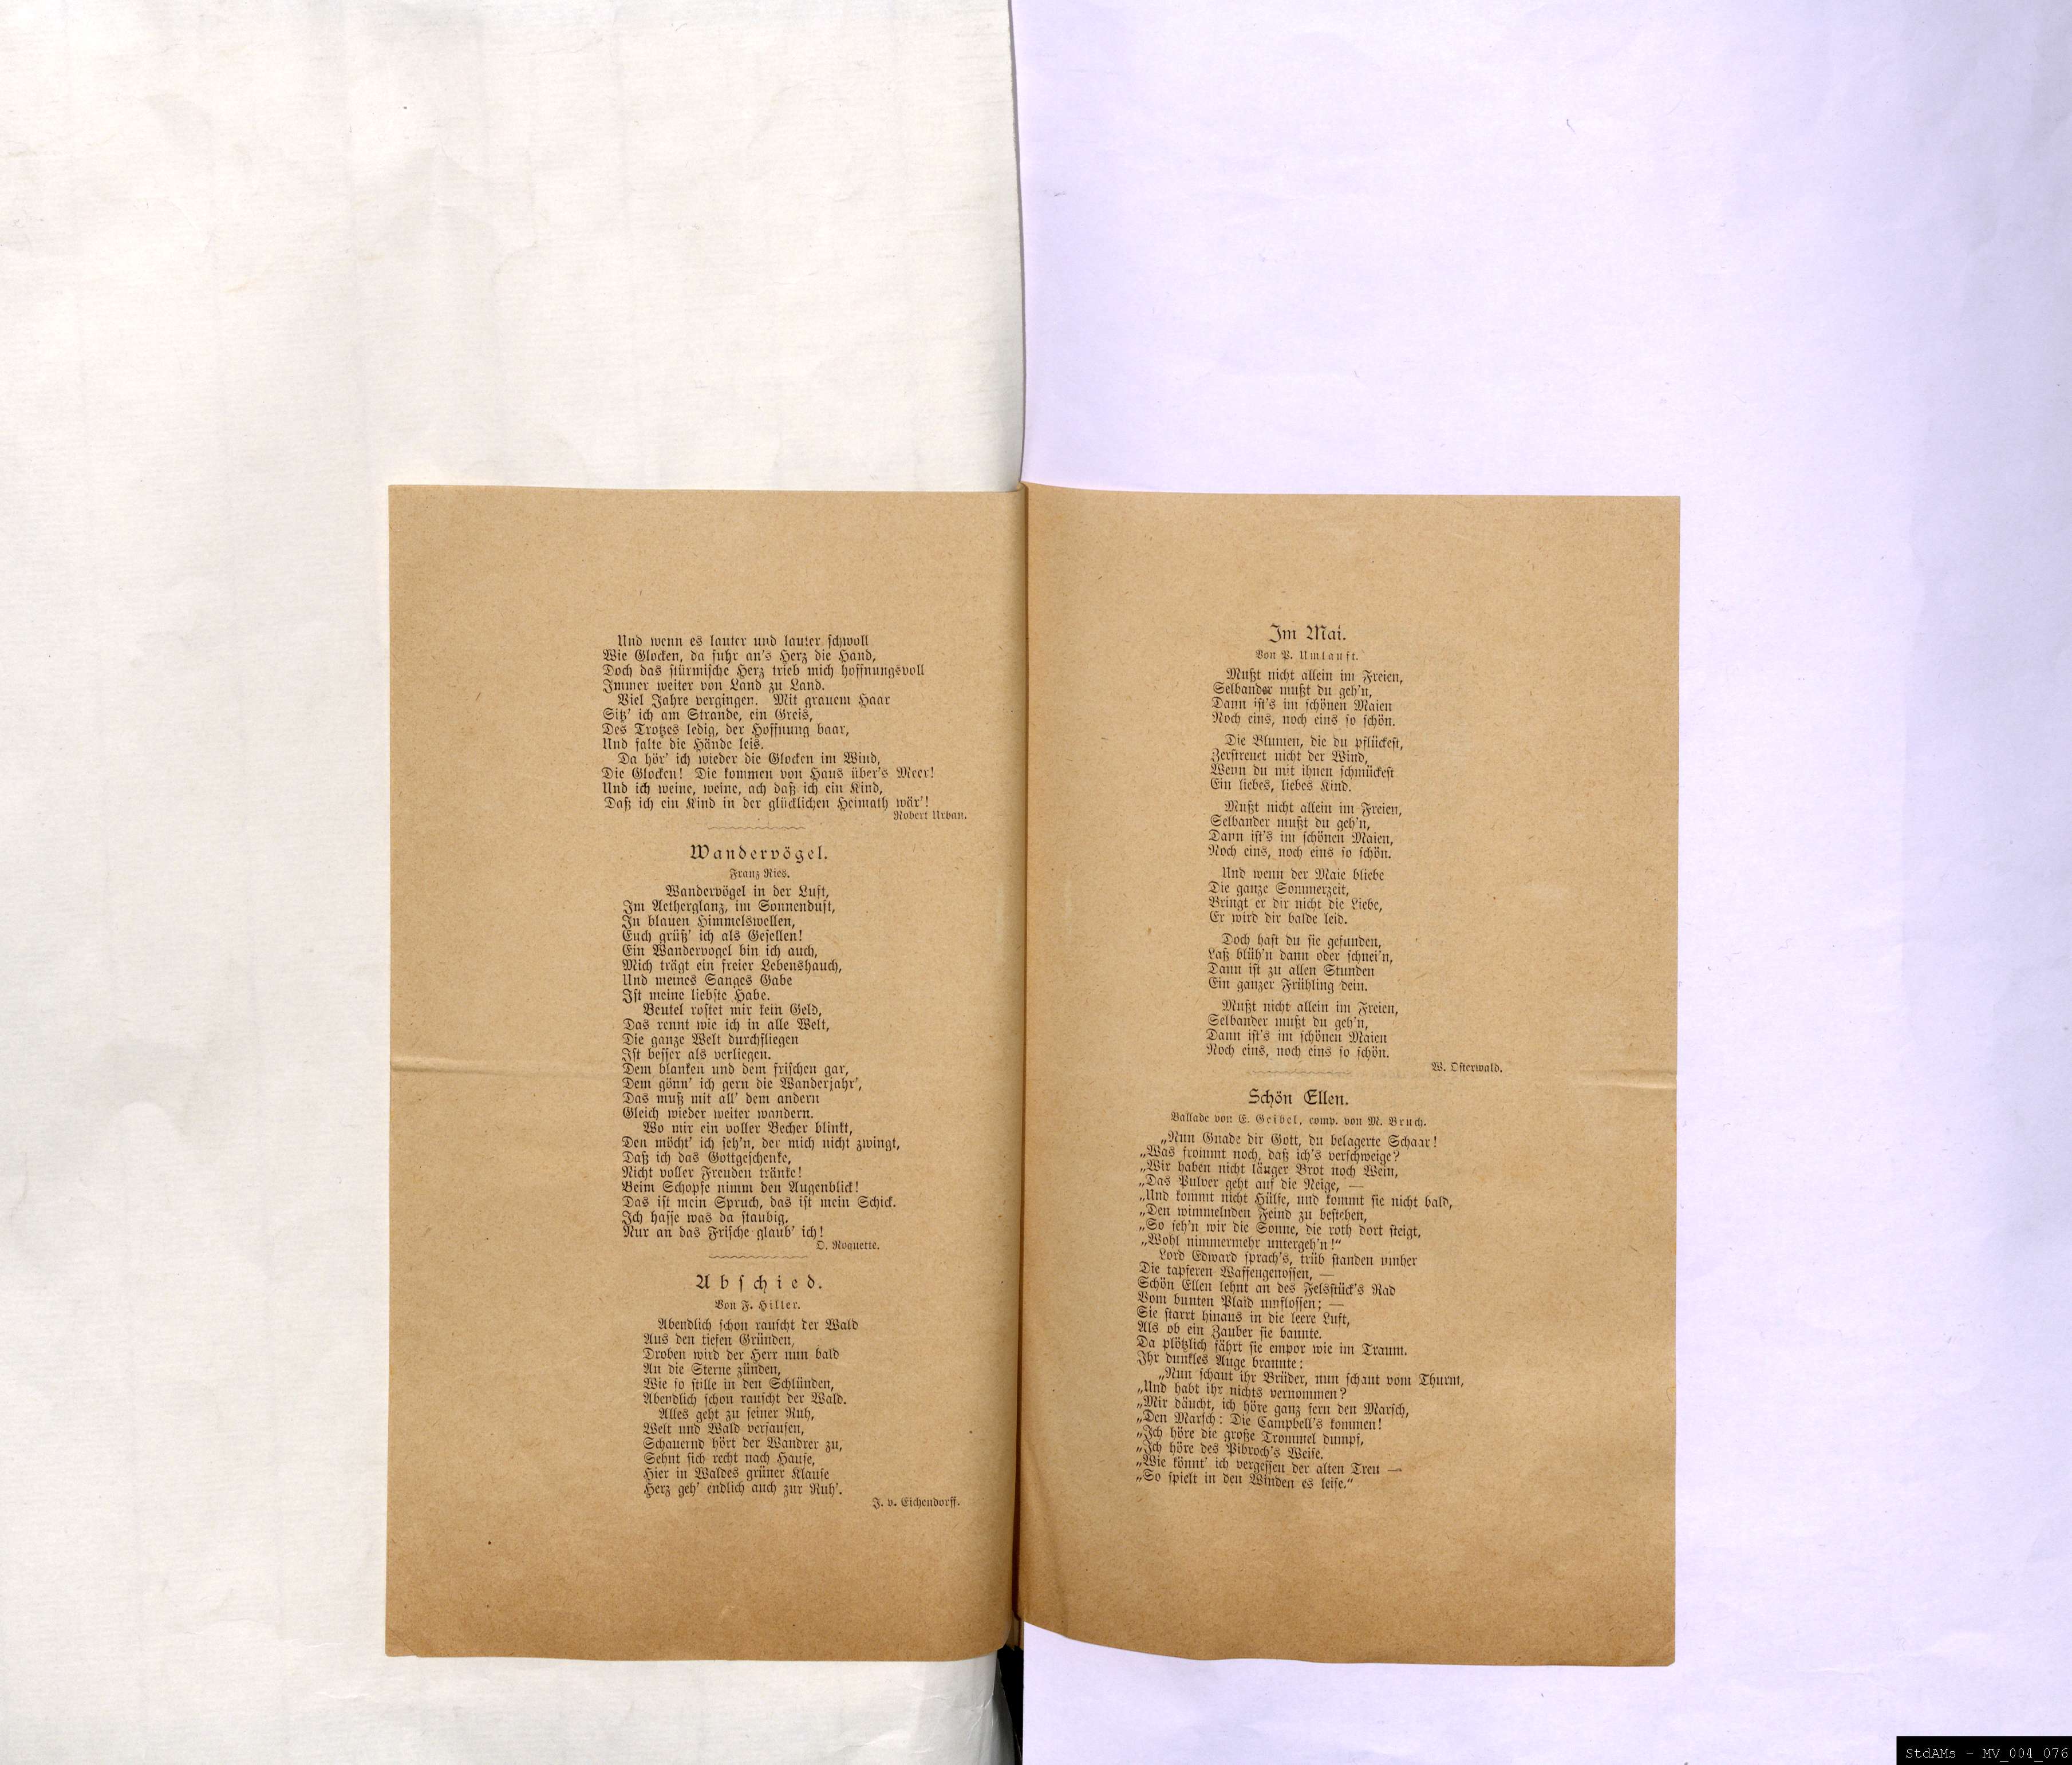 Und wenn es lauter und lauter schwoll
Wie Glocken, da fuhr an's Herz die Hand,
Doch das stürmische Herz trieb mich hoffnungsvoll
Immer weiter von Land zu Land.
Viel Jahre vergingen. Mit grauem Haar
Sitz' ich am Strande, ein Greis,
Des Trotzes ledig, der Hoffnung baar,
Und falte die Hände leis.
Da hör' ich wieder die Glocken im Wind,
Die Glocken! Die kommen von Haus über's Meer!
Und ich weine, weine, ach daß ich ein Kind,
Daß ich ein Kind in der glücklichen Heimath wär'!
Robert Urban.
Wandervögel.
Franz Ries.
Wandervögel in der Luft,
Im Aetherglanz, im Sonnenduft,
In blauen Himmelswellen,
Euch grüß' ich als Gesellen!
Ein Wandervogel bin ich auch,
Mich trägt ein freier Lebenshauch,
Und meines Sanges Gabe
Ist meine liebste Habe.
Beutel rostet mir kein Geld,
Das rennt wie ich in alle Welt,
Die ganze Welt durchfliegen
Ist besser als verliegen.
Dem blanken und dem frischen gar,
Dem gönn' ich gern die Wanderjahr',
Das muß mit all' dem andern
Gleich wieder weiter wandern.
Wo mir ein voller Becher blinkt,
Den möcht' ich seh'n, der mich nicht zwingt,
Daß ich das Gottgeschenke,
Nicht voller Freuden tränke!
Beim Schopfe nimm den Augenblick!
Das ist mein Spruch, das ist mein Schick.
Ich hasse was da staubig,
Nur an das Frische glaub' ich!
O. Roquette.
Abschied.
Von F. Hiller.
Abendlich schon rauscht der Wald
Aus den tiefen Gründen,
Droben wird der Herr nun bald
An die Sterne zünden,
Wie so stille in den Schlünden,
Abendlich schon rauscht der Wald.
Alles geht zu seiner Ruh,
Welt und Wald versausen,
Schauernd hört der Wandrer zu,
Sehnt sich recht nach Hause,
Hier in Waldes grüner Klause
Herz geh' endlich auch zur Ruh'.
J. v. Eichendorff.
Im Mai.
Von P. Umlauft.
Mußt nicht allein im Freien,
Selbander mußt du geh'n,
Dann ist's im schönen Maien
Noch eins, noch eins so schön.
Die Blumen, die du pflückest,
Zerstreuet nicht der Wind,
Wenn du mit ihnen schmückest
Ein liebes, liebes Kind.
Mußt nicht allein im Freien,
Selbander mußt du geh'n,
Dann ist's im schönen Maien,
Noch eins, noch eins so schön.
Und wenn der Maie bliebe
Die ganze Sommerzeit,
Bringt er dir nicht die Liebe,
Er wird dir balde leid.
Doch hast du sie gefunden,
Laß blüh'n dann oder schnei'n,
Dann ist zu allen Stunden
Ein ganzer Frühling dein.
Mußt nicht allein im Freien,
Selbander mußt du geh'n,
Dann ist's im schönen Maien
Noch eins, noch eins so schön.
W. Osterwald.
Schön Ellen.
Ballade von E. Geibel, comp. von M. Bruch.
„Nun Gnade dir Gott, du belagerte Schaar!
„Was frommt noch, daß ich's verschweige?
„Wir haben nicht länger Brot noch Wein,
„Das Pulver geht auf die Neige, —
„Und kommt nicht Hülfe, und kommt sie nicht bald,
„Den wimmelnden Feind zu bestehen,
„So seh'n wir die Sonne, die roth dort steigt,
„Wohl nimmermehr untergeh'n!“
Lord Edward sprach's, trüb standen umher
Die tapferen Waffengenossen, —
Schön Ellen lehnt an des Felsstück's Rad
Vom bunten Plaid umflossen; —
Sie starrt hinaus in die leere Luft,
Als ob ein Zauber sie bannte.
Da plötzlich fährt sie empor wie im Traum.
Ihr dunkles Auge brannte:
„Nun schaut ihr Brüder, nun schaut vom Thurm,
„Und habt ihr nichts vernommen?
„Mir däucht, ich höre ganz fern den Marsch,
„Den Marsch: Die Campbell's kommen!
„Ich höre die große Trommel dumpf,
„Ich höre des Pibroch's Weise.
„Wie könnt' ich vergessen der alten Treu —
„So spielt in den Winden es leise.“
StdAMs - MV_004_076